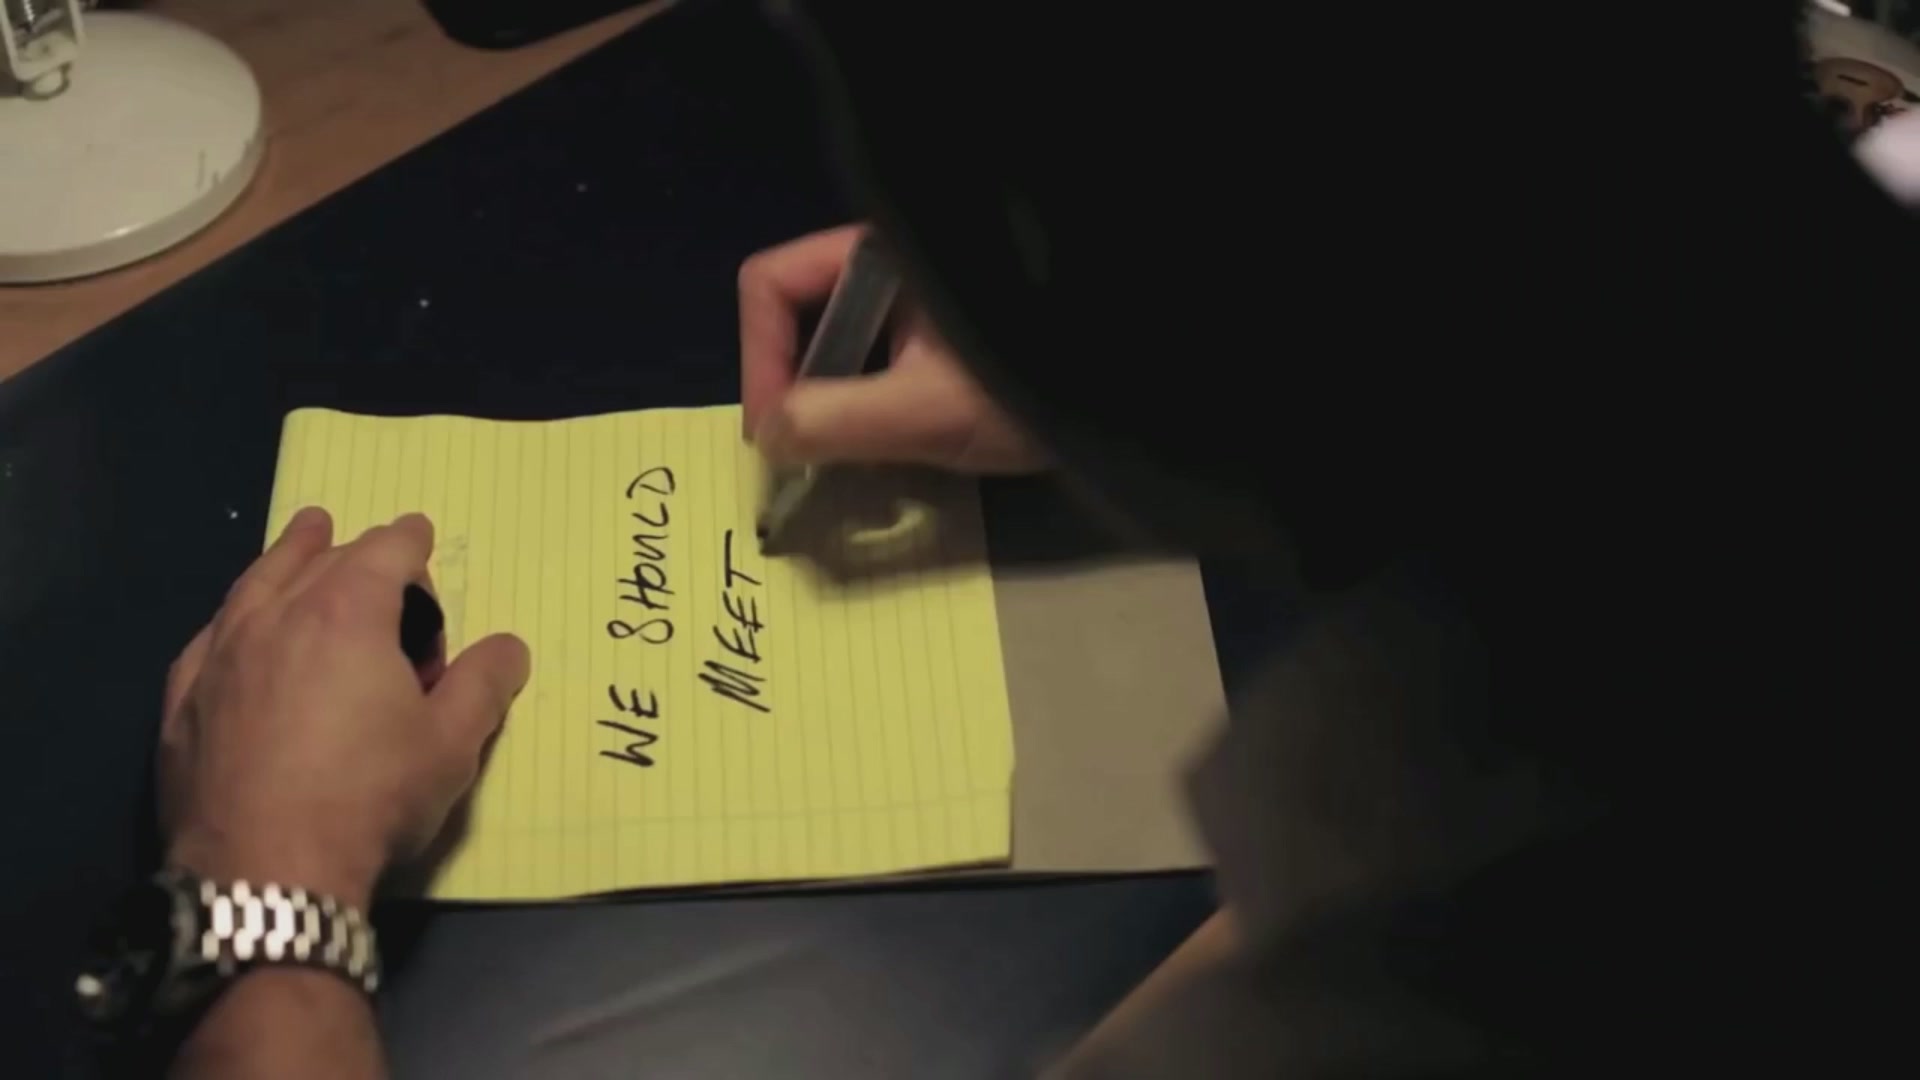 WE SHOULD
MEET